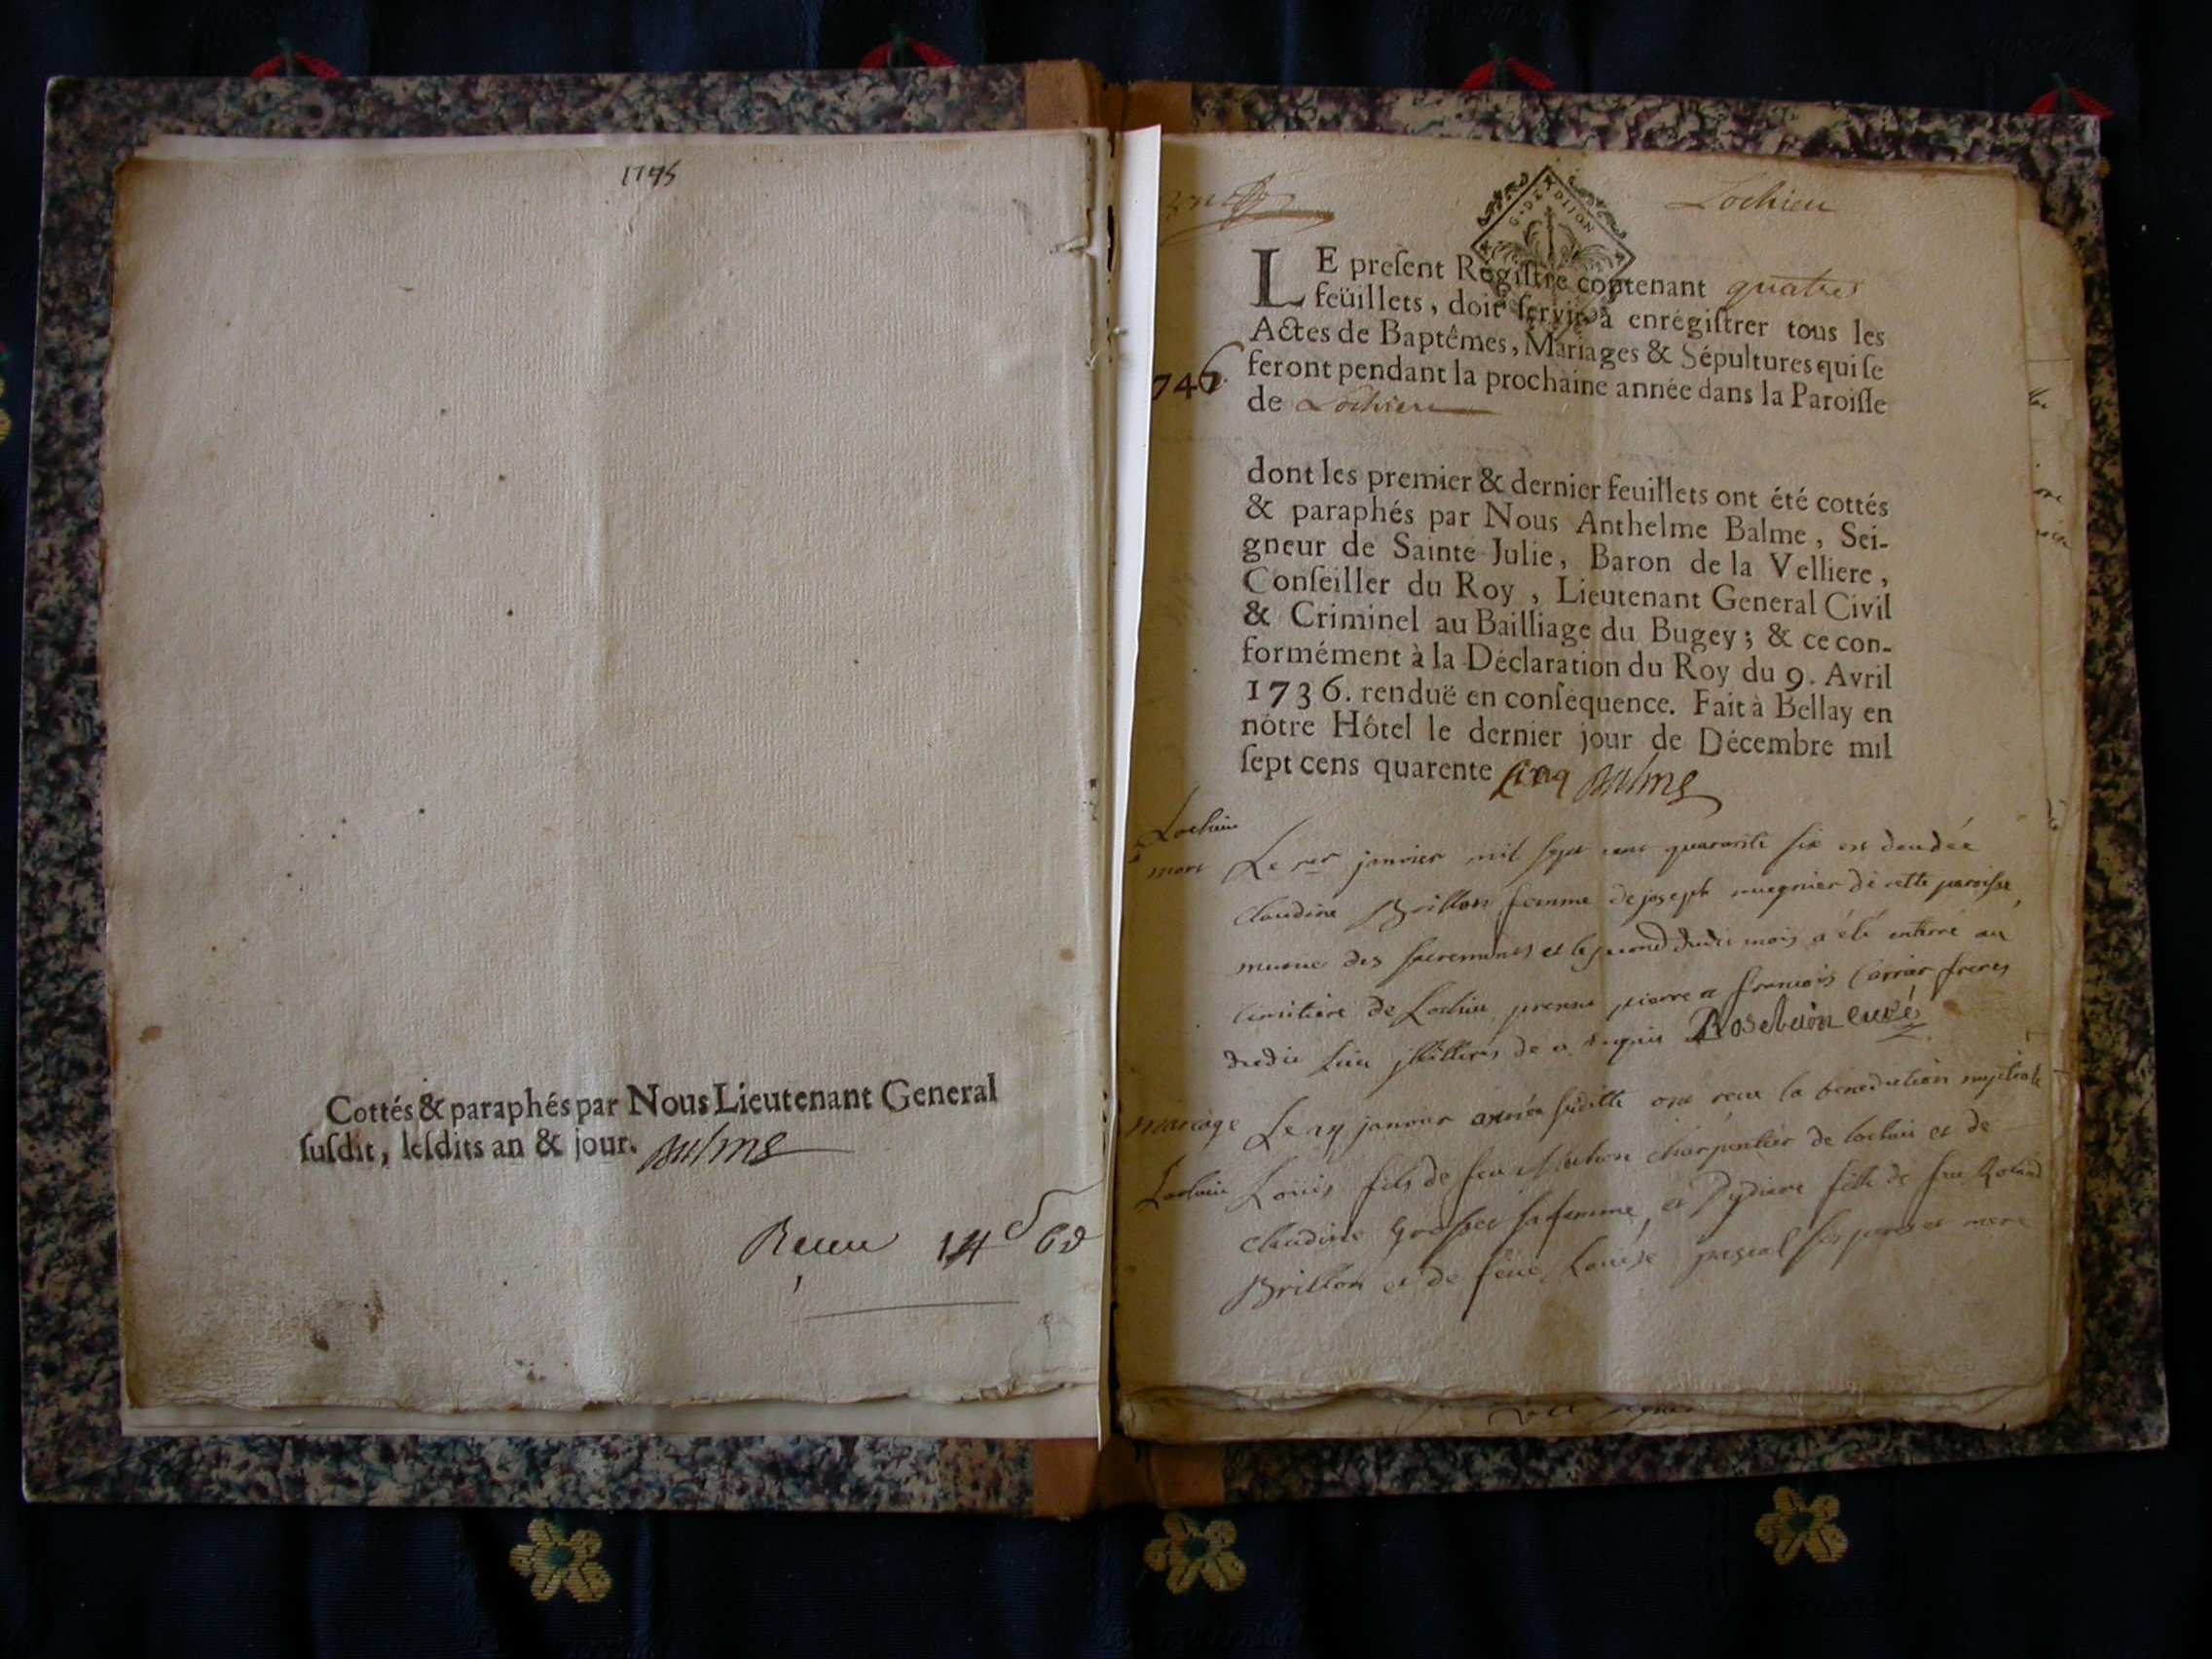 1745
Cottés & paraphés par Nous Lieutenant General
ſuſdit, leſdits an & jour. Balme
Receu 14
Lochieu
G. DE DIJON
LE preſent Régiſtre contenant quatres
feüillets, doit ſervir à enrégiſtrer tous les
Actes de Baptêmes, Mariages & Sépultures qui ſe
feront pendant la prochaine année dans la Paroiſſe
de Lochieu
746
dont les premier & dernier feuillets ont été cottés
& paraphés par Nous Anthelme Balme, Sei-
gneur de Sainte Julie, Baron de la Velliere,
Conſeiller du Roy, Lieutenant General Civil
& Criminel au Bailliage du Bugey; & ce con-
formément à la Déclaration du Roy du 9. Avril
1736. renduë en conſéquence. Fait à Bellay en
nôtre Hôtel le dernier jour de Décembre mil
ſept cens quarente cinq Balme
Lochieu
mort Le 1er janvier mil sept cent quarante six est décédée
Claudine Brillon femme de joseph mugnier de cette paroisse
munie des sacremens et le second dudit mois a été enterré au
cimitiere de Lochieu presens pierre et françois freres
dudit lieu de ce requis curé
mariage Le janvier année susditte ont receu la benediction nuptiale
Lochieu Loüis fils de feu charpentier de lochieu et de
claudine sa femme, et fille de feu Roland
Brillon et de feüe Louise pascal ses pere et mere